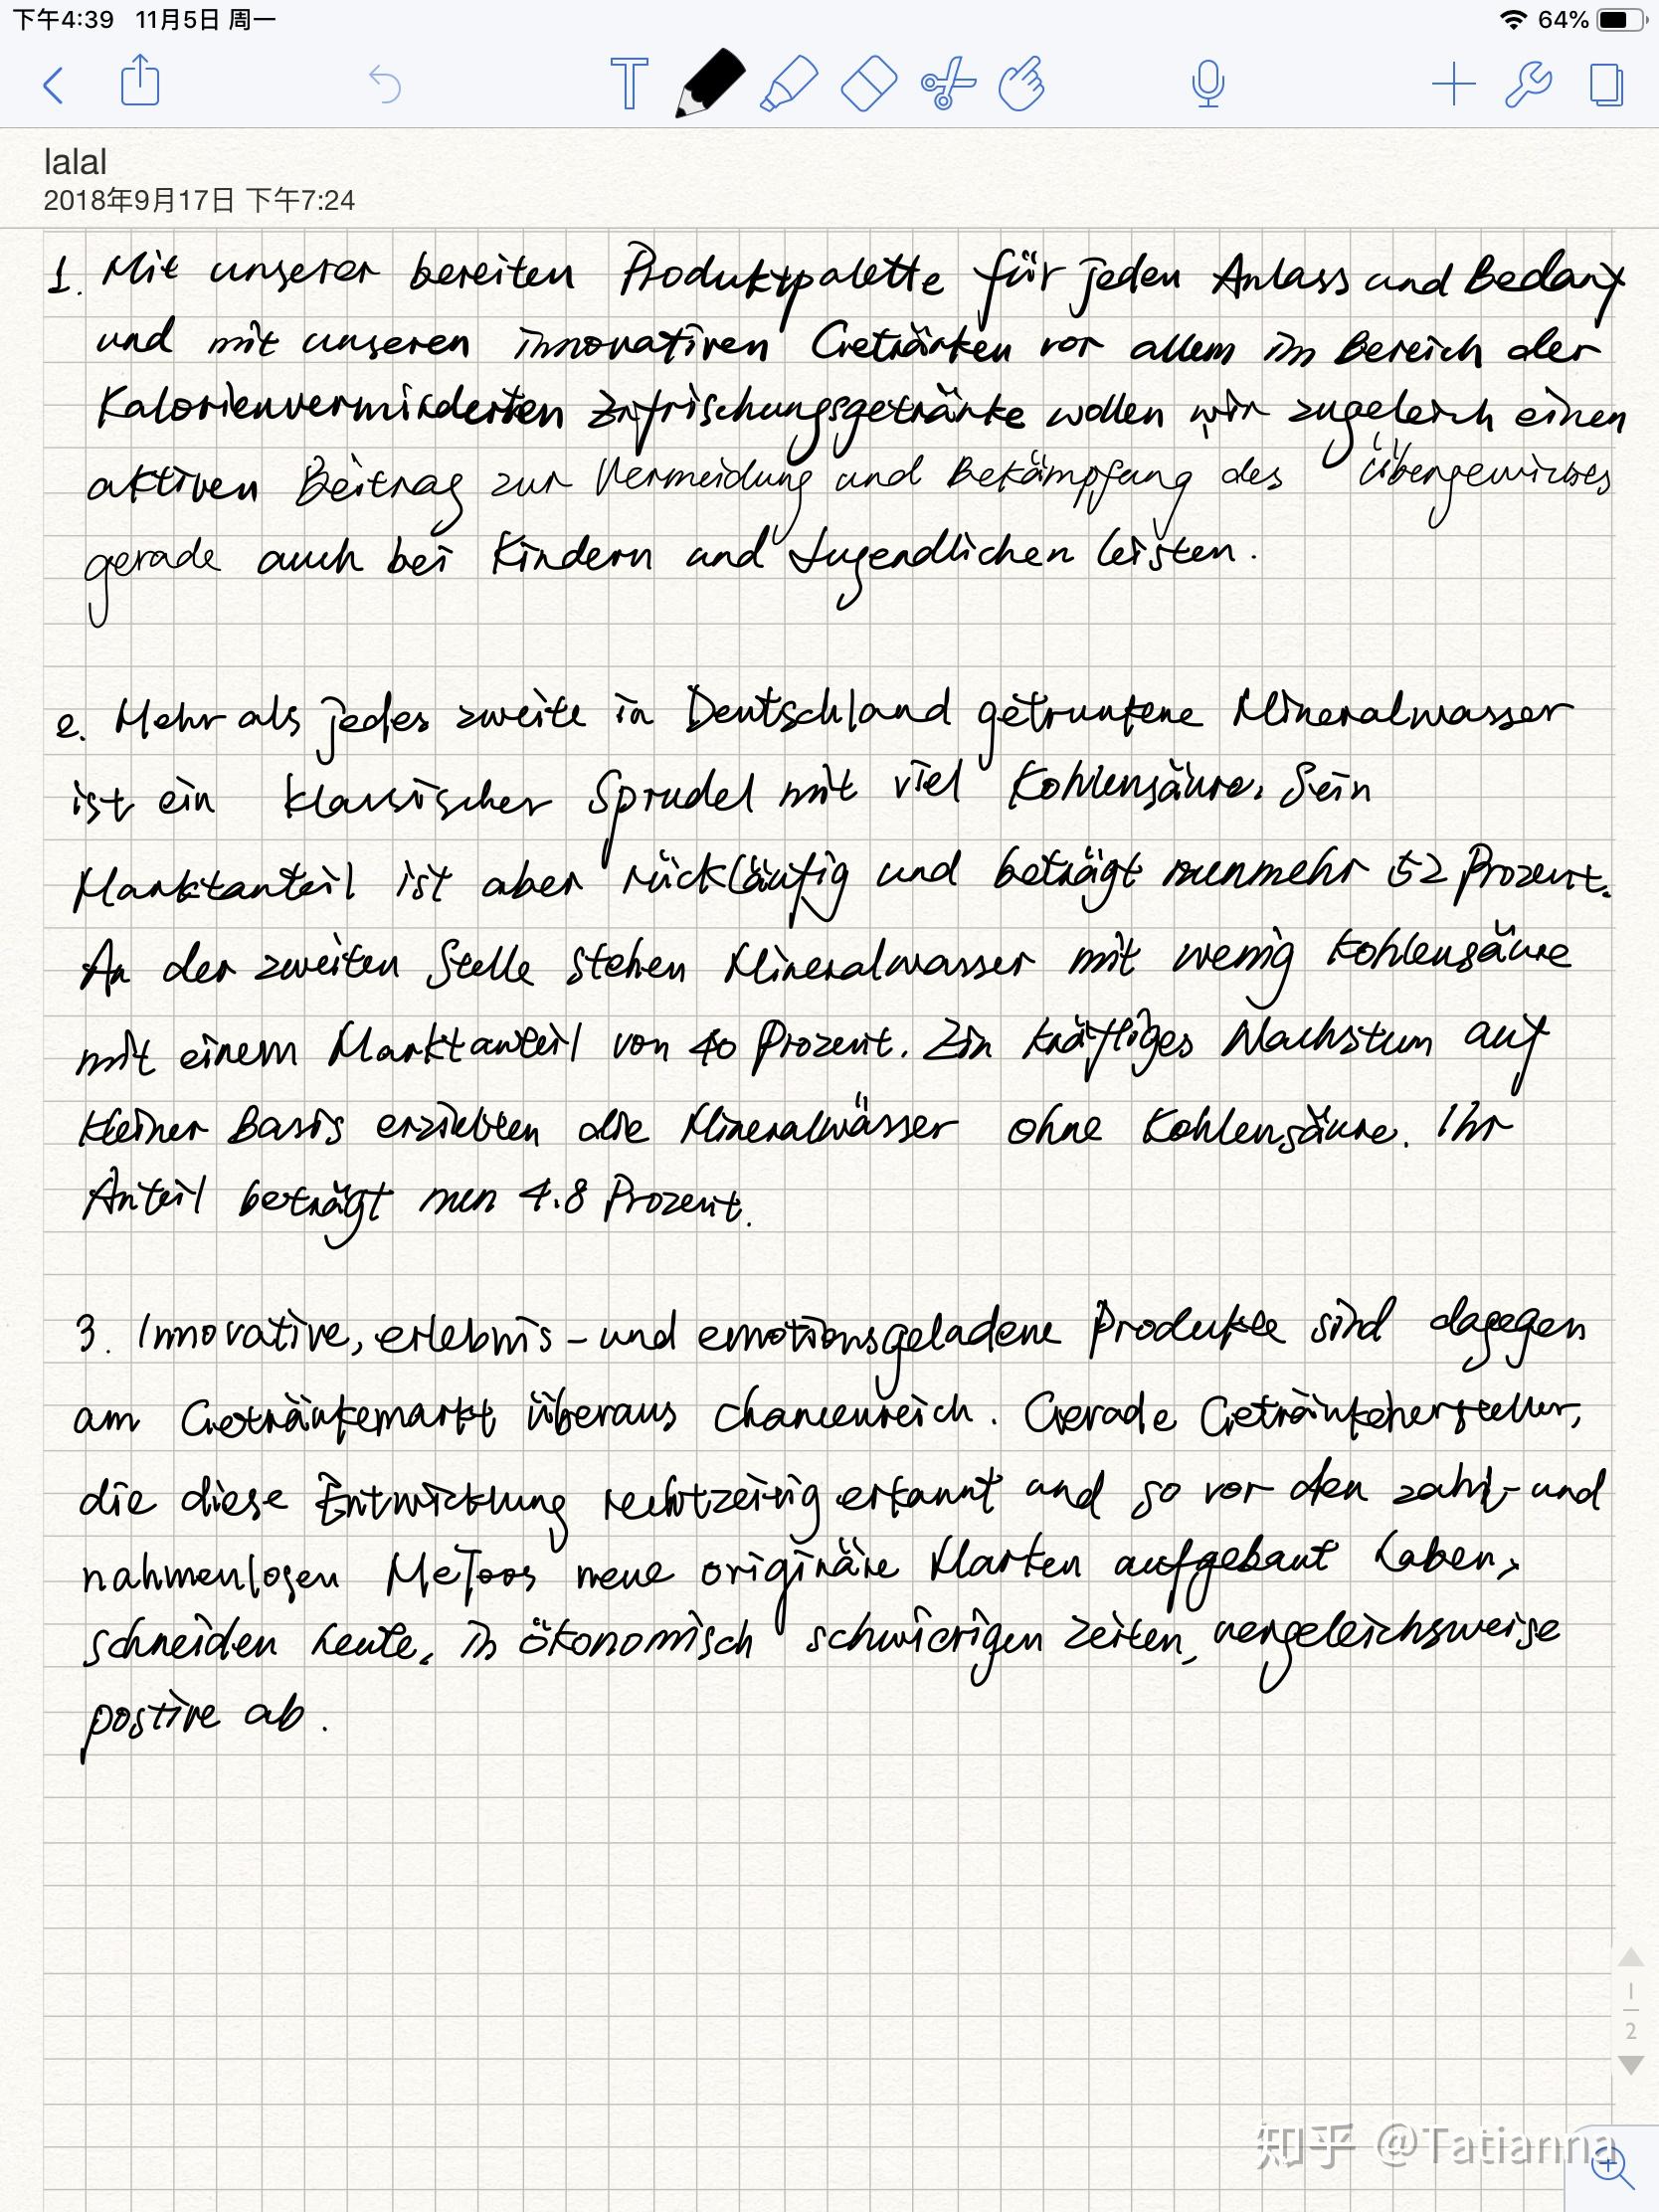 下午4:39 11月5日 周一
64%
lalal
2018年9月17日 下午7:24
1. Mit unserer bereiten Produktpalette für jeden Anlass und Bedarf
und mit unseren innovativen Getränken vor allem im Bereich der
Kalorienverminderten Erfrischungsgetränke wollen wir zugeleich einen
aktiven Beitrag zur Vermeidung und Bekämpfung des
gerade auch bei Kindern und Jugendlichen leisten.
2. Mehr als jedes zweite in Deutschland getrunkene Mineralwasser
ist ein klassischer Sprudel mit viel Kohlensäure. Sein
Marktanteil ist aber rückläufig und beträgt nunmehr 52 Prozent.
An der zweiten Stelle stehen Mineralwasser mit wenig Kohlensäure
mit einem Marktanteil von 40 Prozent. Ein kräftiges Wachstum auf
kleiner Basis erzielten die Mineralwässer ohne Kohlensäure. Ihr
Anteil beträgt nun 4.8 Prozent.
3. Innovative, erlebnis- und emotionsgeladene Produkte sind dagegen
am Getränkemarkt überaus chancenreich. Gerade Getränkehersteller,
die diese Entwicklung rechtzeitig erkannt und so vor den zahl- und
nahmenlosen MeToos neue originäre Marken aufgebaut haben,
schneiden heute, in ökonomisch schwierigen Zeiten, vergeleichsweise
postive ab.
1
2
知乎 @Tatianna